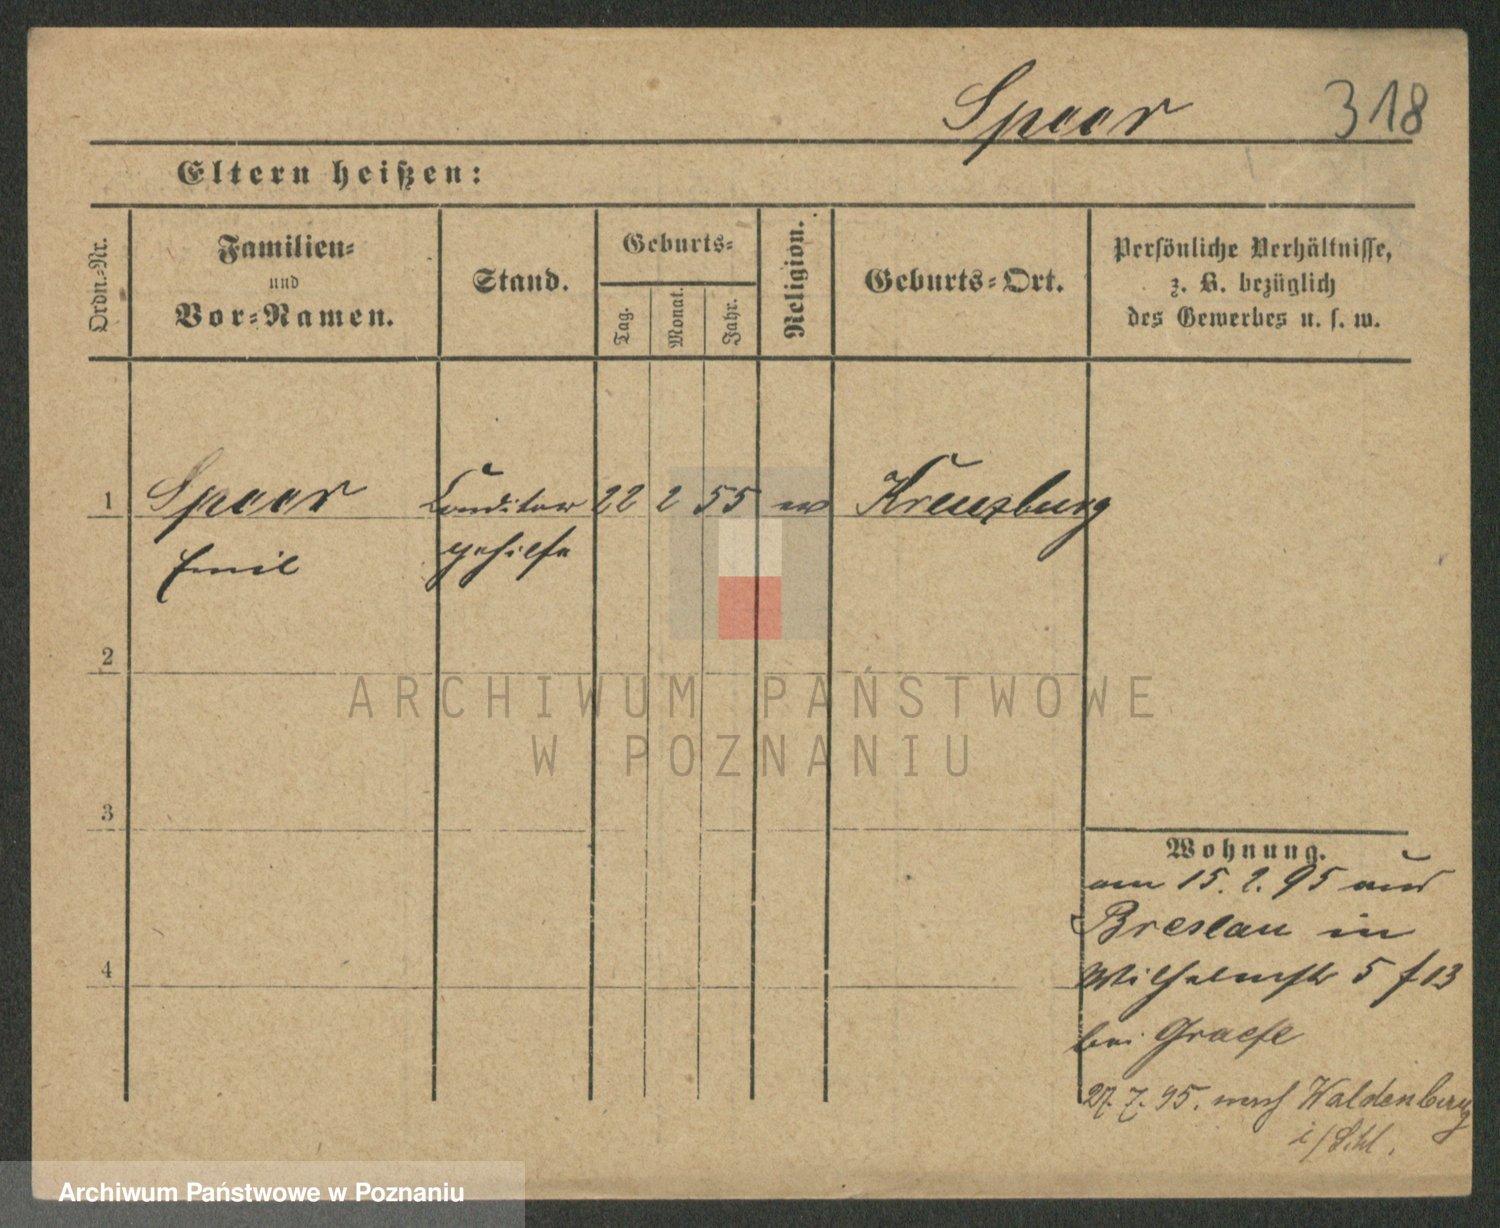 Spaar 318
Eltern heißen:
Ordn.-Nr.
Familien-
und
Vor-Namen.
Stand.
Geburts-
Tag.
Monat.
Jahr.
Religion.
Geburts-Ort.
Persönliche Verhältnisse,
z. B. bezüglich
des Gewerbes u. s. w.
1 Spaar Conditor 22 2 55 ev Kreuzburg
Emil gehilfe
2
3
4
Wohnung.
am 15. 2. 95 aus
Breslau in
Wilhelmstr 5
bei Graefe
27. 7. 95. nach Waldenburg
i/Schl.
ARCHIWUM PAŃSTWOWE
W POZNANIU
Archiwum Państwowe w Poznaniu